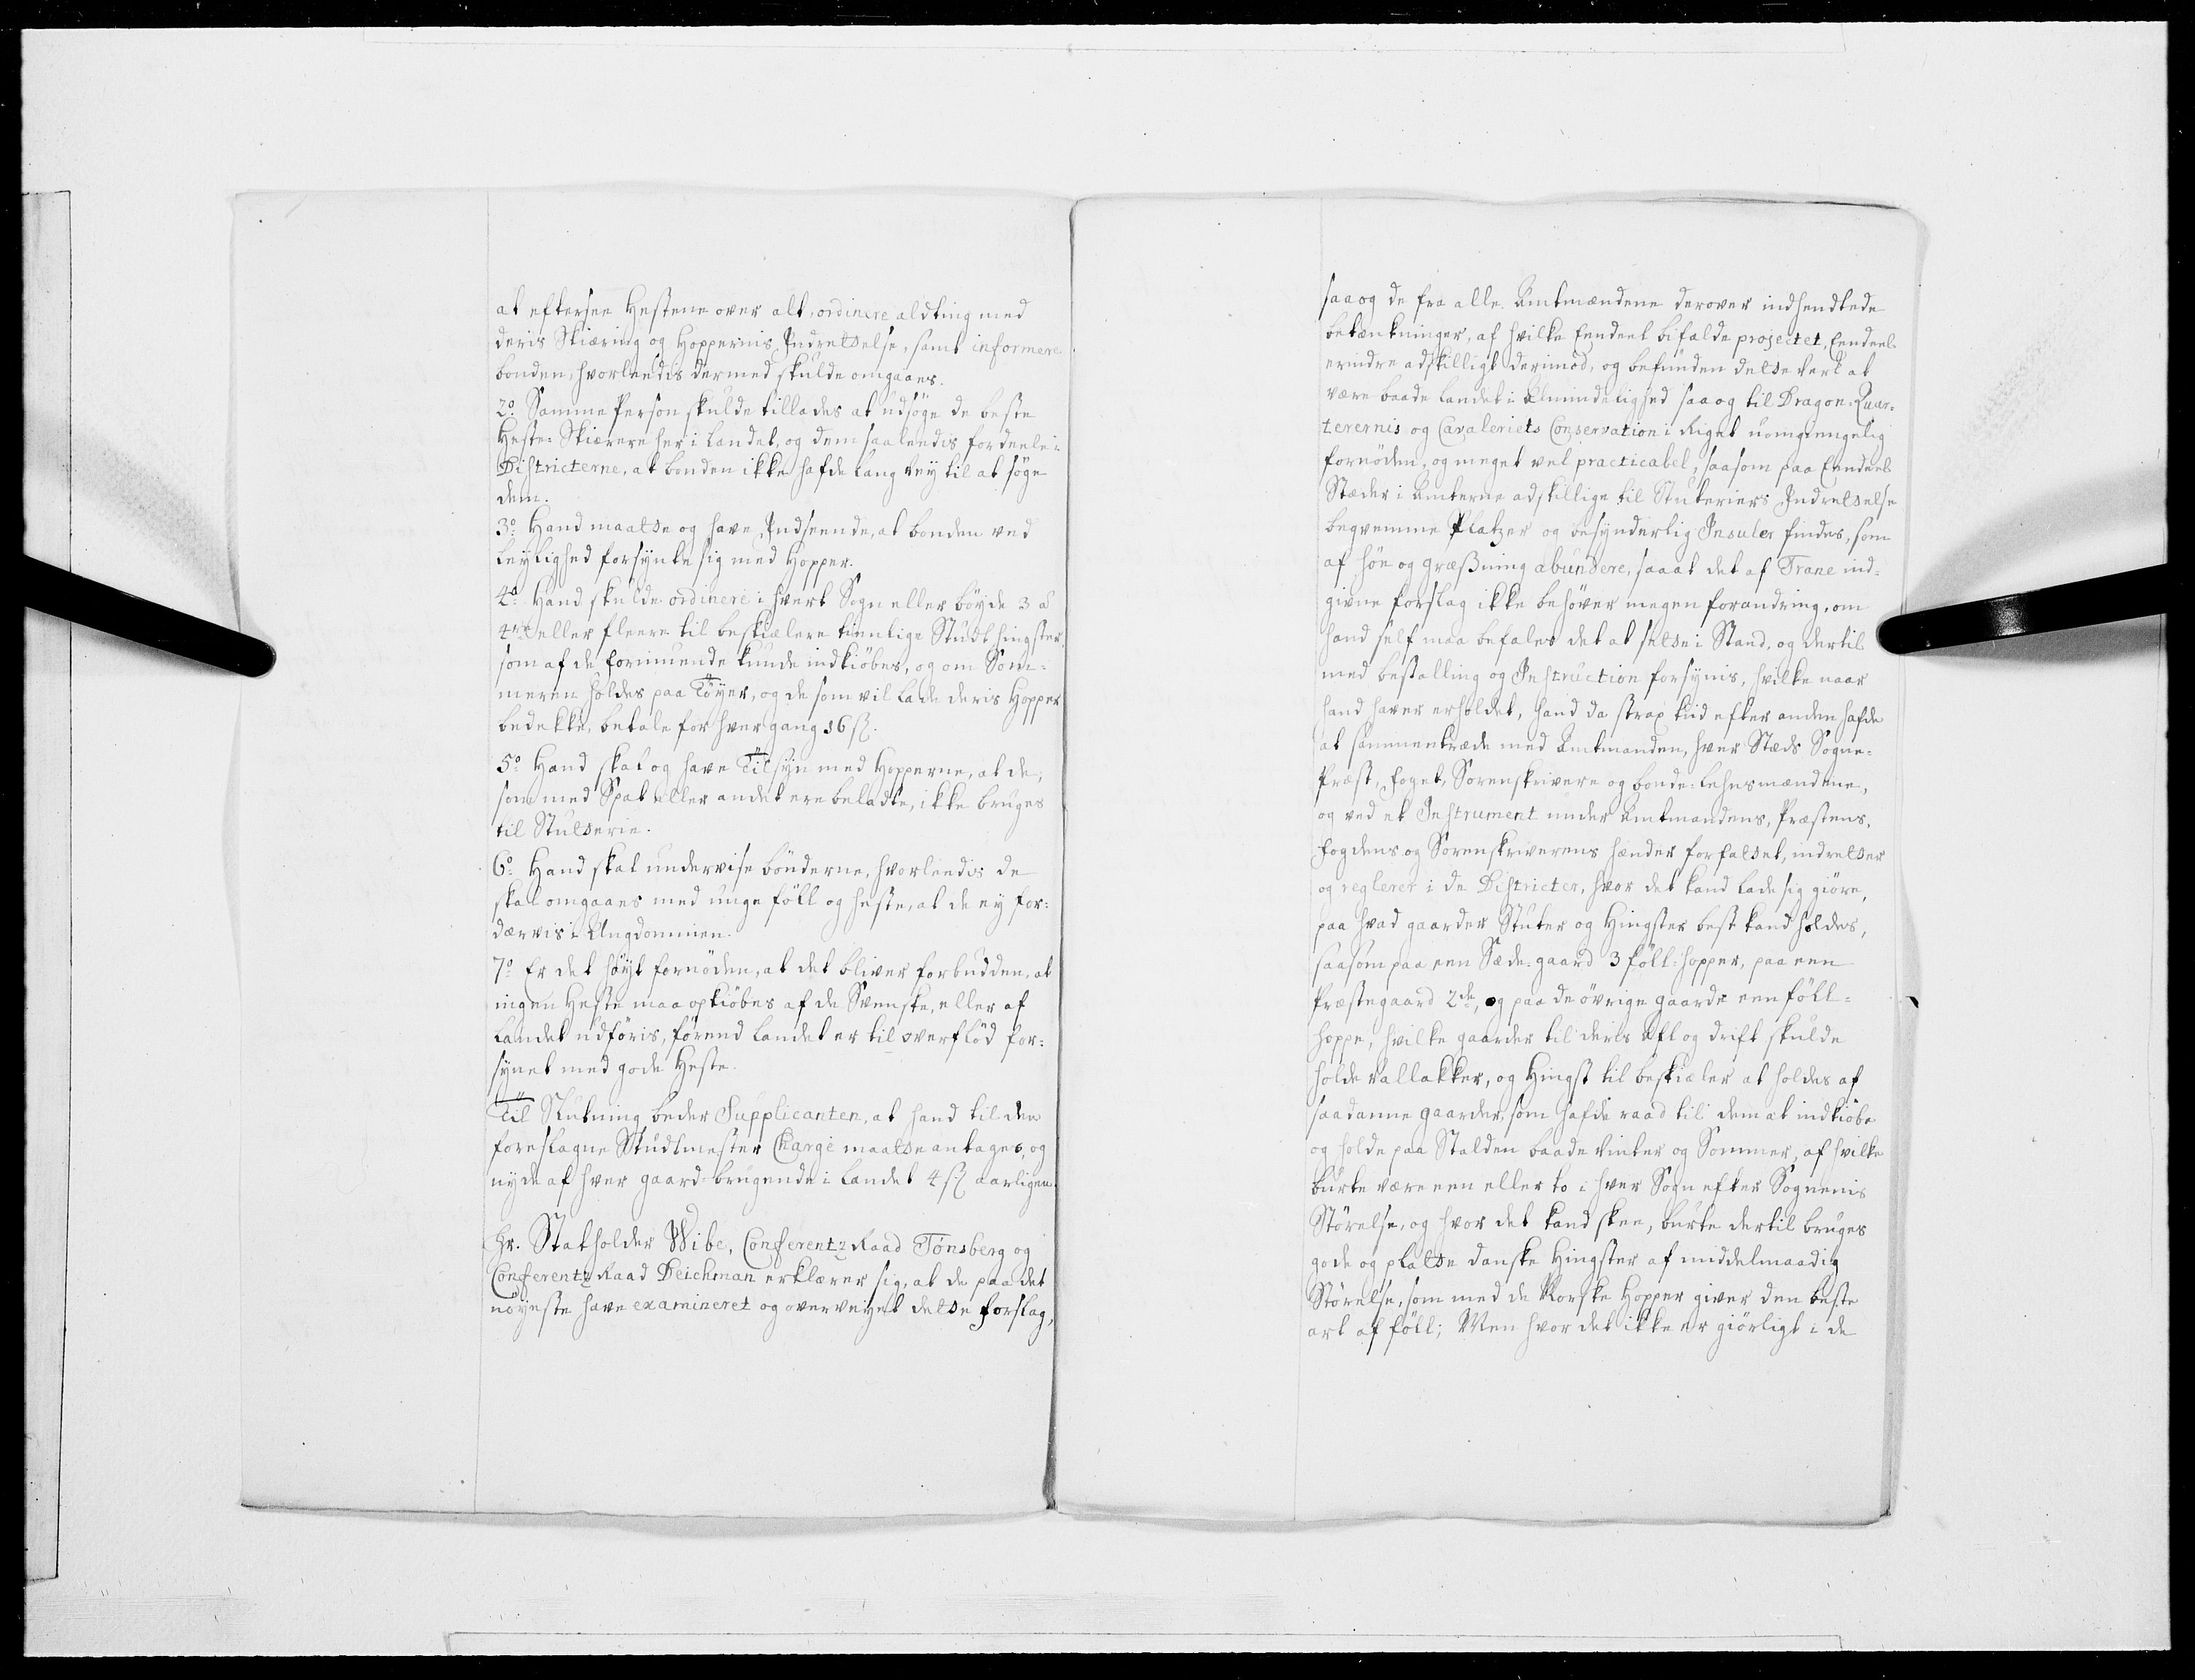 at eftersee Hestene over alt, ordinere aldting med
deris Skiæring og Hoppernis Indrettelse, samt informere
bonden, hvorleedis dermed skulde omgaaes.
2o. Samme Person skulde tillades at udsöge de beste
Heste-Skiærere her i Landet, og dem saaleedis fordeele i
Districterne, at bonden ikke hafde lang Vey til at söge
dem.
3o. Hand maatte og have Indseende, at bonden ved
leylighed forsynte sig med Hopper.
4a. Hand skulde ordinere i hvert Sogn eller böyde 3 a
4re eller fleere til beskielere tienlige Studt hingster
som af de formuende kunde indkiöbes, og om Som-
meren holdes paa Töyer, og de som vil lade deris Hopper
bedekke, betale for hver gang 16 ß.
5o. Hand skal og have Tilsyn med Hopperne, at de,
som med Spat eller andet ere beladte, ikke bruges
til Stutterie.
6o. Hand skal undervise bönderne, hvorleedis de
skal omgaaes med unge föll og heste, at de ey for-
dærvis i Ungdommen.
7o. Er det höyt fornöden, at det bliver forbudden, at
ingen Heste maa opkiöbes af de Svenske, eller af
Landet udföris, förend Landet er til overflöd for-
synet med gode Heste.
Til Slutning beder Supplicanten, at hand til den
foreslagne Studtmester Charge maatte antages, og
nyde af hver gaard-brugende i Landet 4 ß aarligen.
Hr. Statholder Wibe, Conferentz Raad Tonsberg og
Conferentz Raad Deichman erklærer sig, at de paa det
nöyeste have examineret og overveyet dette forslag,
saa og de fra alle Amtmændene derover indhendtede
betænkninger, af hvilke Eendeel bifalde projectet, Eendeel
erindre adskilligt derimod, og befunden dette verk at
være baade Landet i Almindelighed saa og til Dragon-Quar-
terernis og Cavaleriets Conservation i Riget uomgiengelig
fornöden, og meget vel practicabel, saasom paa Eendeel
Stæder i Amterne adskillige til Stuteriers Indrettelse
beqvemme Platzer og besynderlig Insuler findes, som
af höe og græßning abundere, saa at det af Trane ind-
givne forslag ikke behöver megen forandring, om
hand self maa befales det at sette i Stand, og dertil
med bestalling og Instruction forsynis, hvilke naar
hand haver erholdet, hand da strax tiid efter anden hafde
at sammentræde med Amtmanden, hver Stæds Sogne-
Præst, foget, Sorenskrivere og bonde-Lehnsmændene,
og ved et Instrument under Amtmandens, Præstens,
fogdens og Sorenskriverens hænder forfattet, indretter
og reglerer i de Districter, hvor det kand lade sig giöre,
paa hvad gaarder Stuter og Hingster best kand holdes,
saasom paa een Sæde-gaard 3 föll-hopper, paa een
Præstegaard 2de, og paa de övrige gaarde een föll-
hoppe, hvilke gaarder til deris Afl og drift skulde
holde vallakker, og Hingst til beskieler at holdes af
saadanne gaarder, som hafde raad til dem at indkiöbe
og holde paa Stalden baade vinter og Sommer, af hvilke
burte være een eller to i hver Sogn efter Sognenis
Störelse, og hvor det kand skee, burte dertil bruges
gode og platte danske Hingster af middelmaadig
Störelse, som med de Norske Hopper giver den beste
art af föll; Men hvor det ikke er giörligt i de